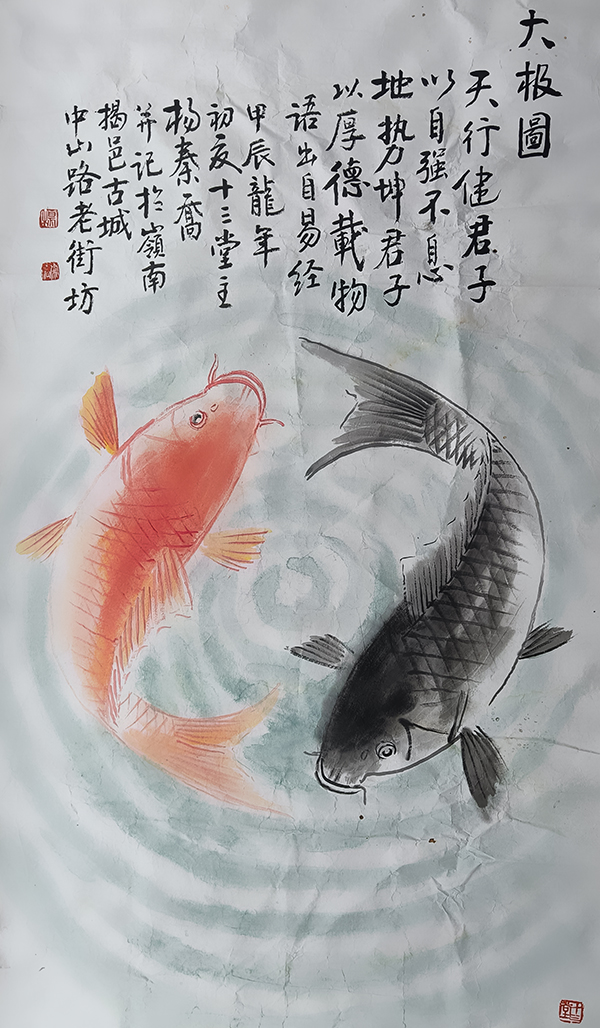 大极圖
天行健君子
以自强不息
地势坤君子
以厚德載物
语出自易经
甲辰龍年
初夏十三堂主
杨秦喬
并记於嶺南
揭邑古城
中山路老街坊